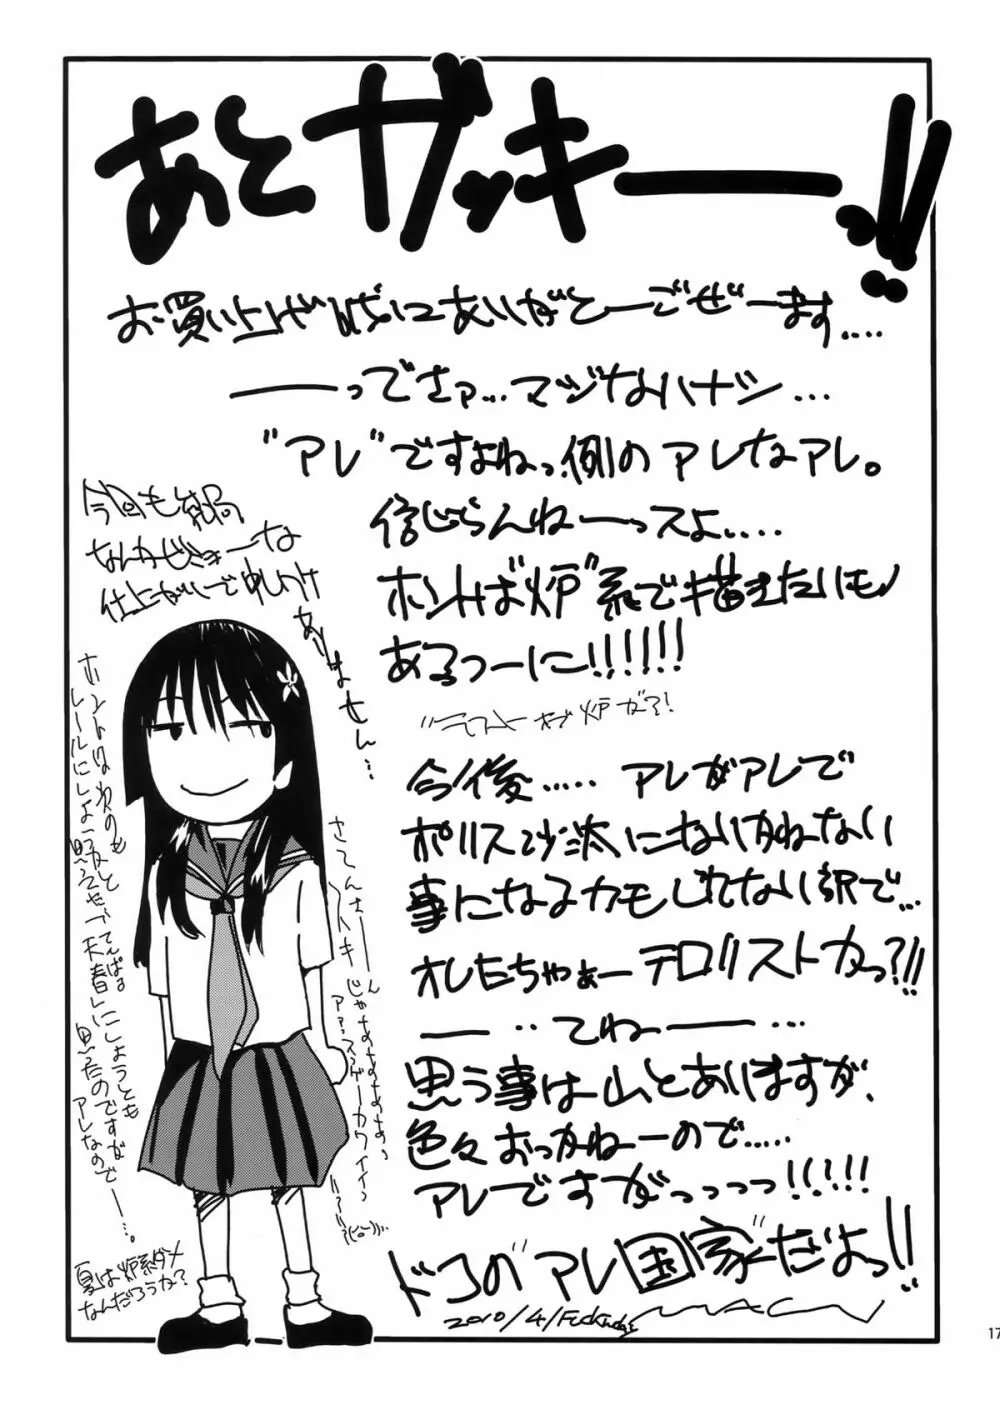 あとガッキーーっ!!
お買い上げ誠にありがとーごぜーます....
――ってさァ...マジなハナシ...
"アレ"ですよねっ例のアレなアレ。
信じらんねーーっスよ....
ホントは"炉"系で描きたいもん
あるっつーに!!!!!!
今後..... アレがアレで
ポリス沙汰になりかねない
事になるカモしれない訳で...
オレたちゃぁーテロリストかっ?!!
――..てねー――...
思う事は山とありますが、
色々おっかねーので.....
アレですがっっっっ!!!!!
ドコのアレ国家だよっ!!
2010/4/
今回も結局
なんかびみょーな
仕上がりで申し訳
ありません...
ホントはわのも
レールにしようかと
思うたのですが
アレなので――...。
さてんさ――ん
カワイイ
夏は炉系ダメ
なんだろうか?
17